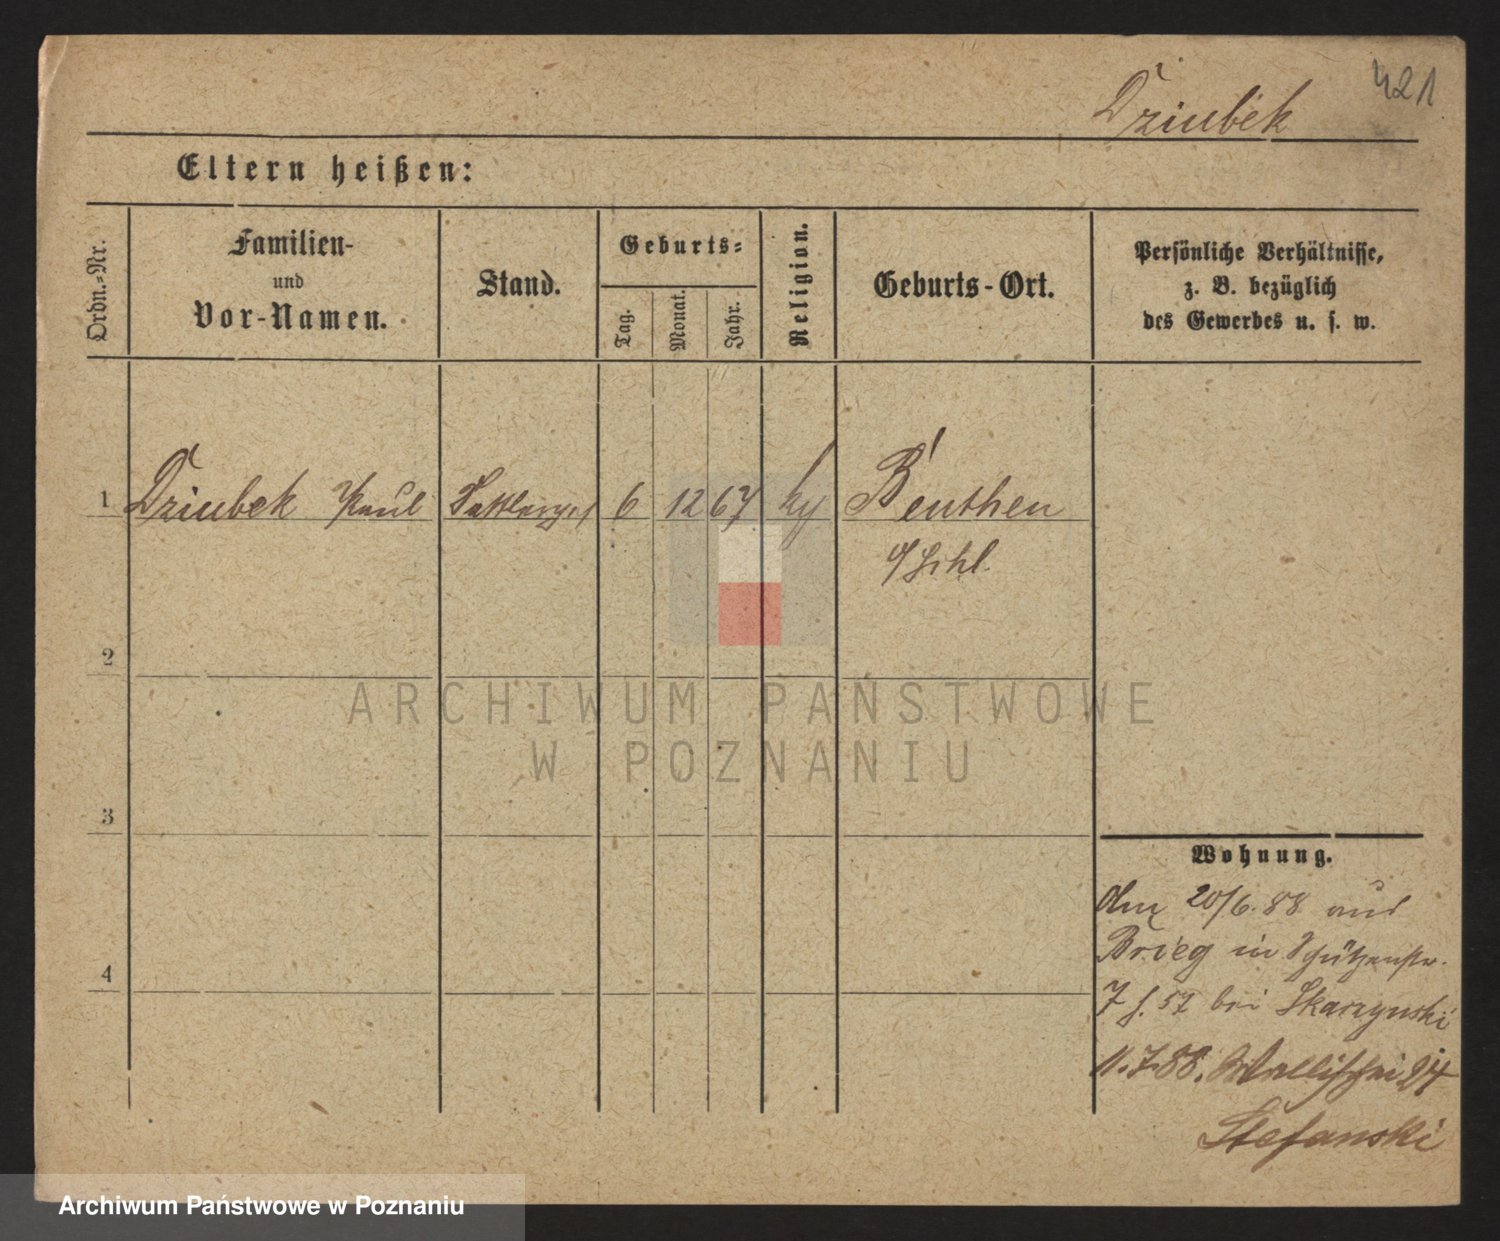 421
Dziubek
Eltern heißen:
Ordn.-Nr.
Familien-
und
Vor-Namen.
Stand.
Geburts-
Tag.
Monat.
Jahr.
Religion.
Geburts-Ort.
Persönliche Verhältnisse,
z. B. bezüglich
des Gewerbes u. s. w.
1 Dziubek Paul Sattlerges 6 12 67 Beuthen
2
ARCHIWUM PAŃSTWOWE
W POZNANIU
3
4
Wohnung.
den 20/6.88 aus
Brieg in Schützenstr.
7 f. 57 bei Skarzynski
11.7.88. Wallischei
Stefanski
Archiwum Państwowe w Poznaniu